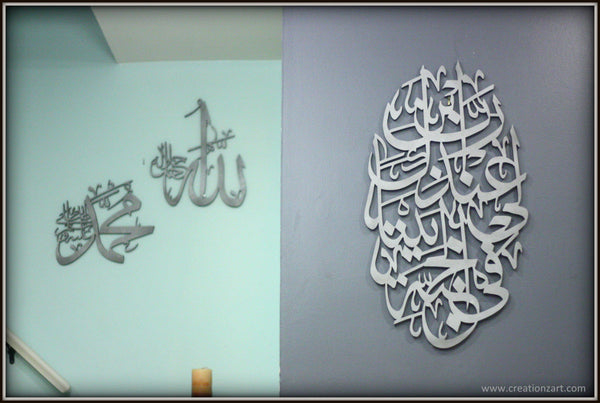 الله جل جلاله
محمد صلى الله عليه وسلم
رب ابن لي عندك بيتا في الجنة
www.creationzart.com